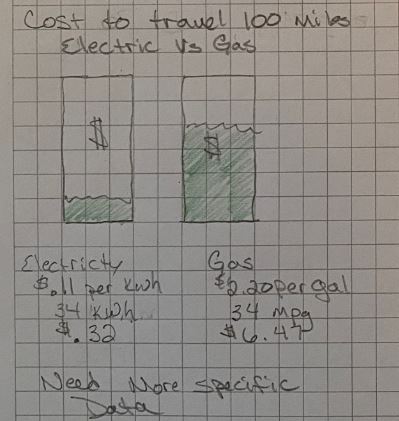 Cost to travel 100 Miles
Electric Vs Gas
$
$
Electricty
$.11 per kwh
34 kwh
$.32
Gas
$2.20 per gal
34 mpg
$6.47
Need More specific
Data